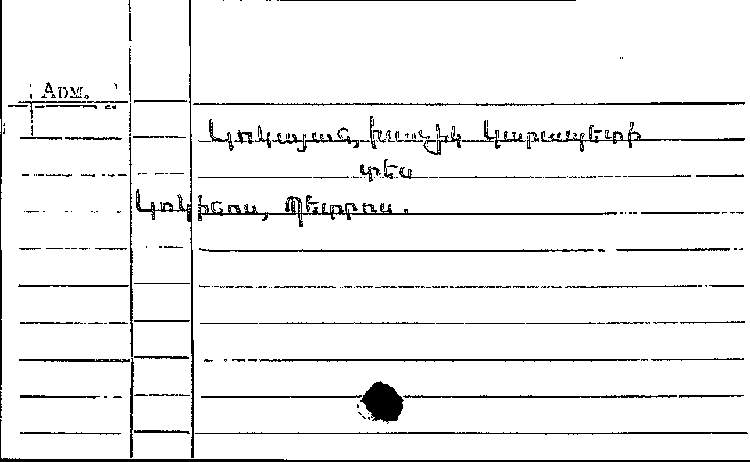 ADM.
Կոկայան, Խաչիկ Կարապետի
տես
Կոկինոս, Պետրոս.